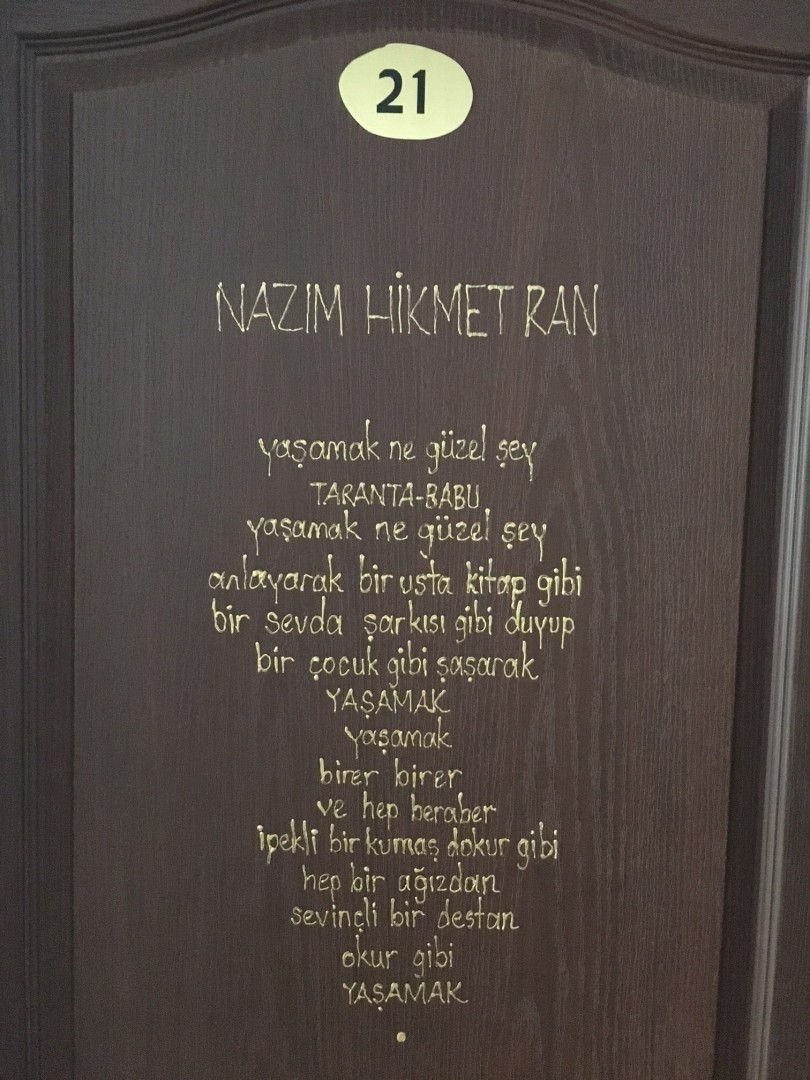 21
NAZIM HİKMET RAN
yaşamak ne güzel şey
TARANTA-BABU
yaşamak ne güzel şey
anlayarak bir usta kitap gibi
bir sevda şarkısı gibi duyup
bir çocuk gibi şaşarak
YAŞAMAK
yaşamak
birer birer
ve hep beraber
ipekli bir kumaş dokur gibi
hep bir ağızdan
sevinçli bir destan
okur gibi
YAŞAMAK
.